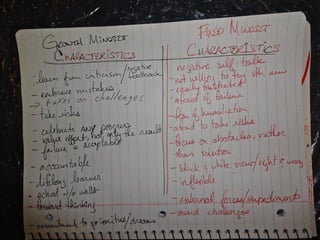 Growth Mindset
Characteristics
- learn from criticism/negative feedback
- embrace mistakes
→ takes on challenges
- take risks
- celebrate any progress
value effort, not only the result
- failure is acceptable
- accountable
- lifelong learner
- school w/o walls
- forward thinking
- commitment to priorities/dreams
Fixed Mindset
Characteristics
- negative self talk
- not willing to try sth new
- easily frustrated
- afraid of failure
- fear of humiliation
- afraid to take risks
- focus on obstacles, rather
than solution
- black & white view/right & wrong
- inflexible
- external forces/impediments
- avoid challenges